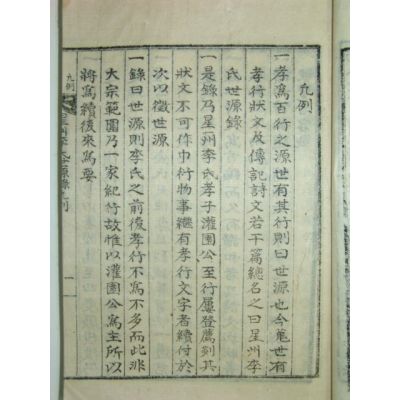 凡例
一孝爲百行之源世有其行則曰世源也今蒐世有
孝行狀文及傳記詩文若干篇總名之曰星州李
氏世源錄
一是錄乃星州李氏孝子灌園公至行屢登薦剡其
狀文不可作巾衍物事繼有孝行文字者續付於
次以徵世源
一錄曰世源則李氏之前後孝行不爲不多而此非
大宗範圍乃一家紀行故惟以灌園公爲主所以
將爲續後來爲要
凡例
星州李氏世源錄凡例
一